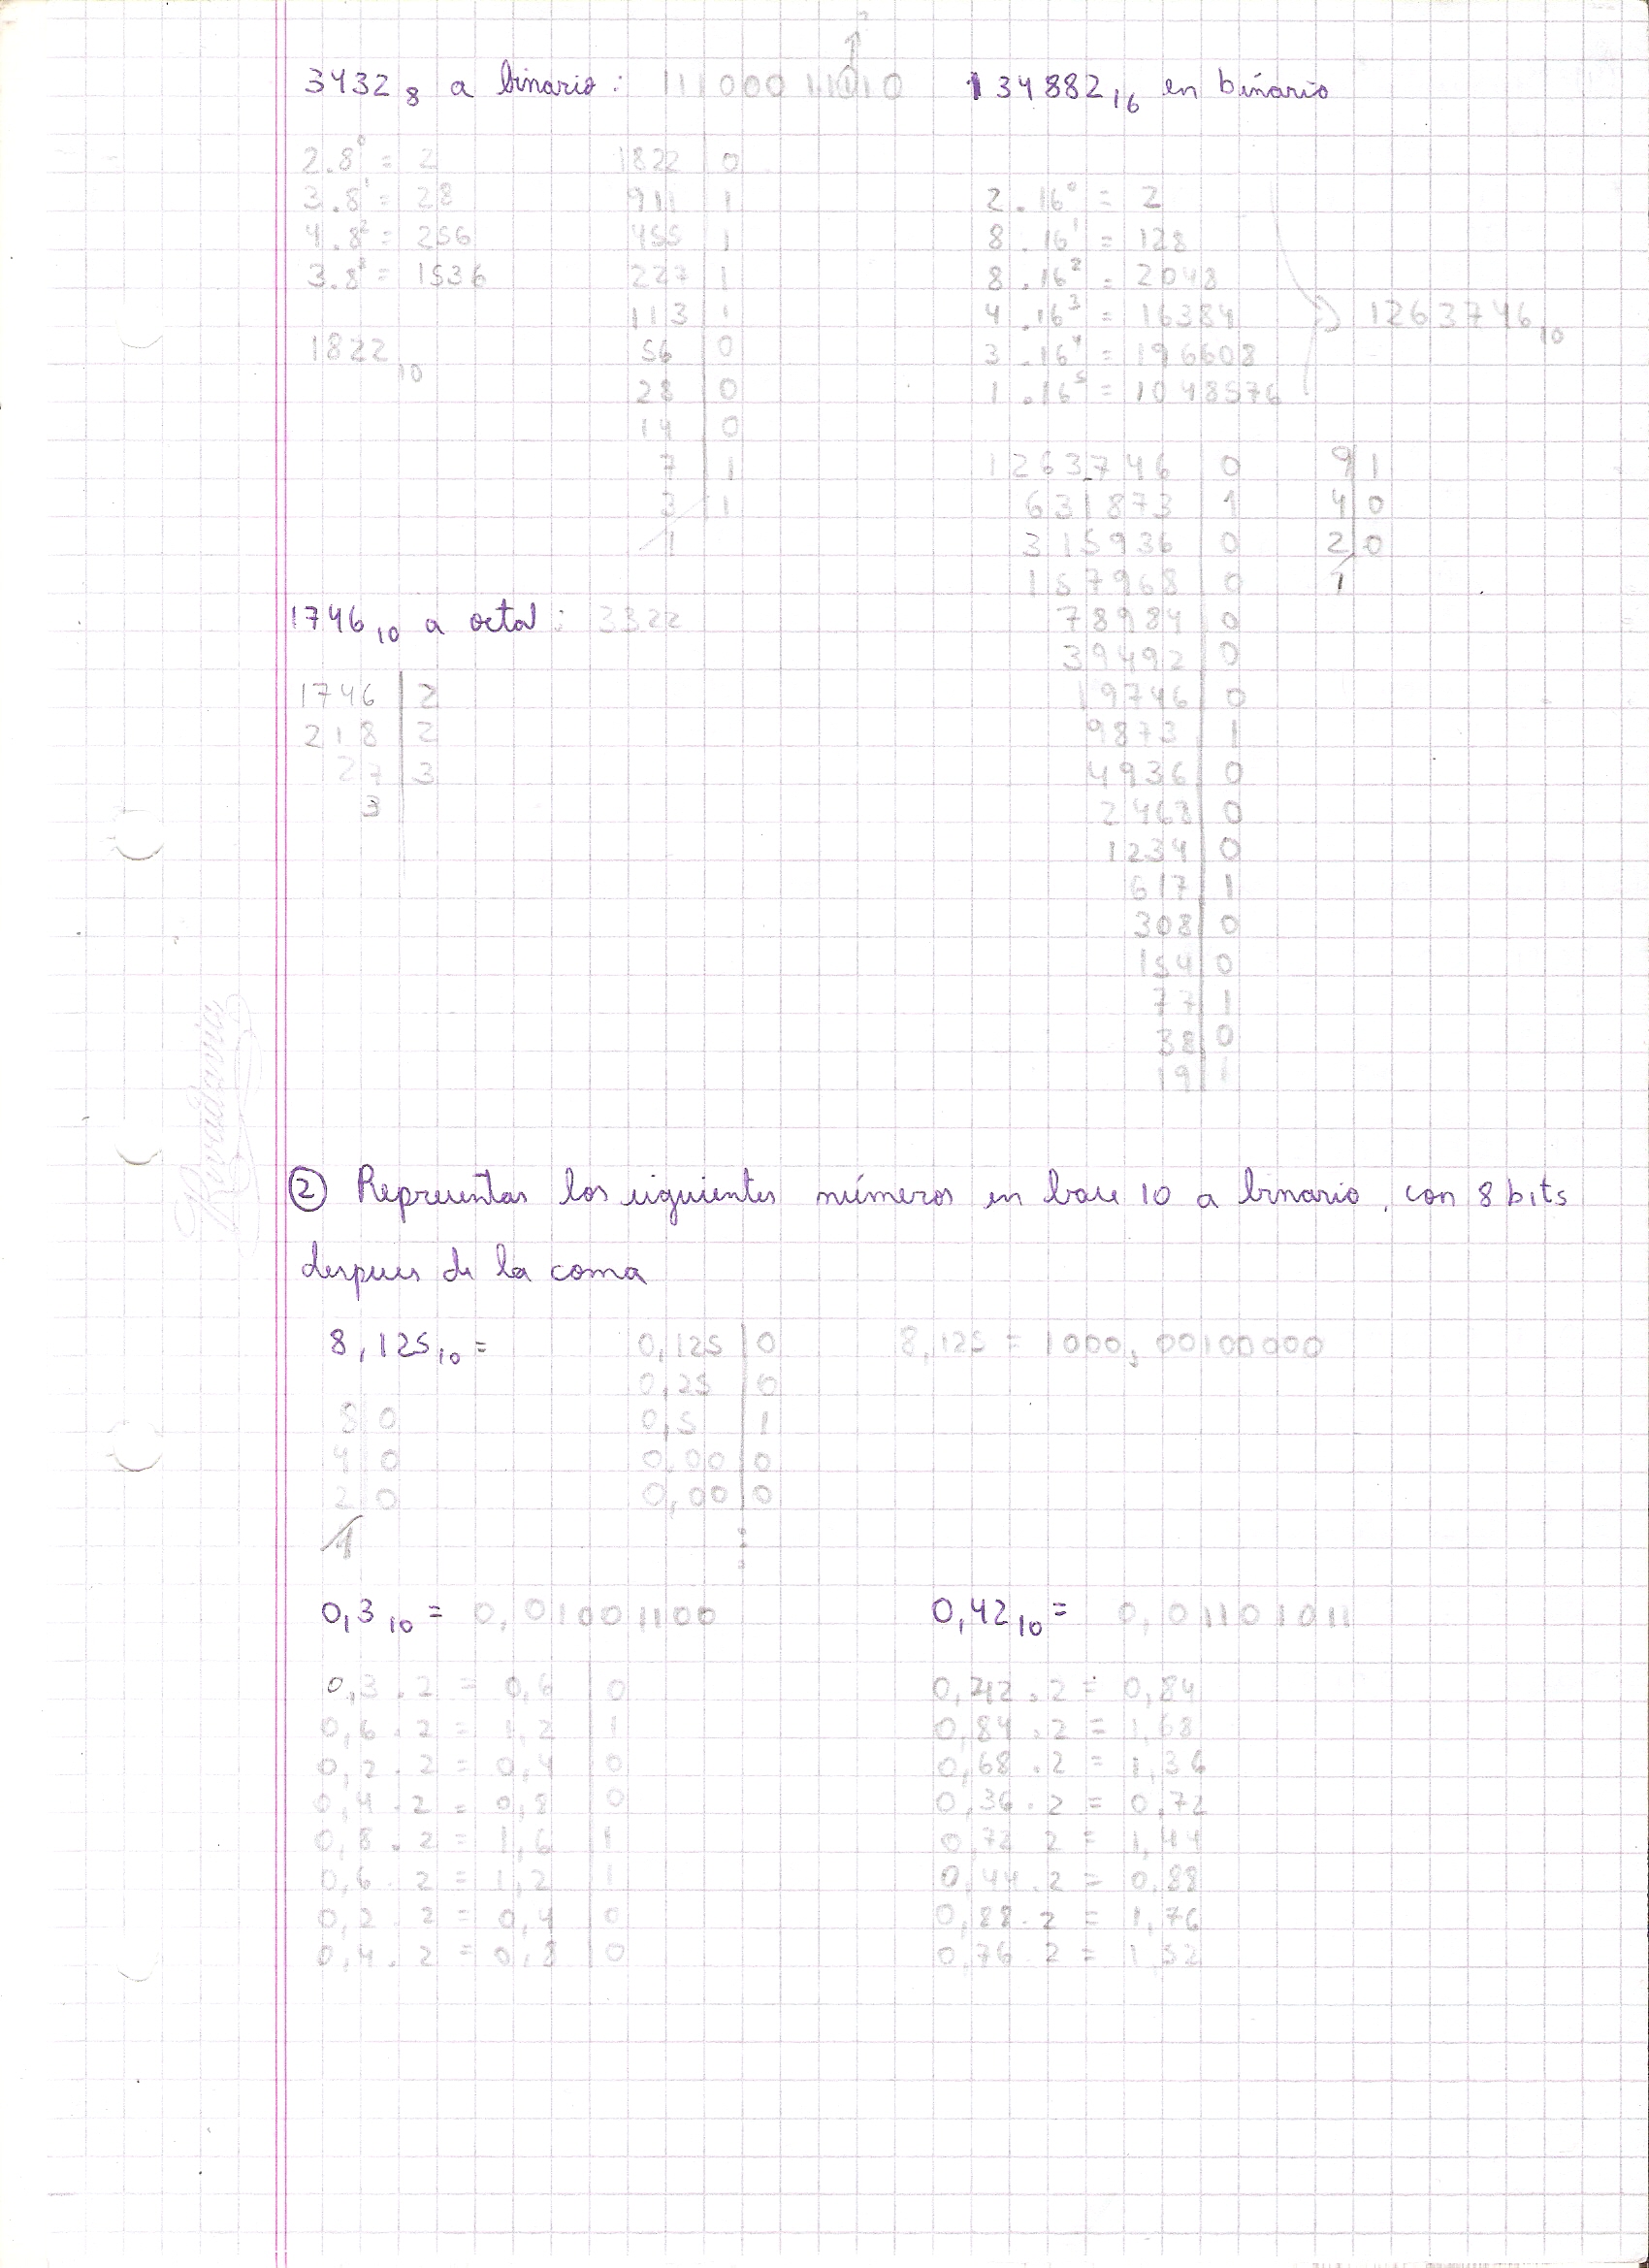 3432₈ a binario: 111000 11010 134882₁₆ en binario
2.8⁰ = 2
3.8¹ = 28
4.8² = 256
3.8³ = 1536
1822₁₀
1822 | 0
911 | 1
455 | 1
227 | 1
113 | 1
56 | 0
28 | 0
14 | 0
7 | 1
3 | 1
1
2.16⁰ = 2
8.16¹ = 128
8.16² = 2048
4.16³ = 16384
3.16⁴ = 196608
1.16⁵ = 1048576
1263746₁₀
1263746 | 0
631873 | 1
315936 | 0
157968 | 0
78984 | 0
39492 | 0
19746 | 0
9873 | 1
4936 | 0
2468 | 0
1234 | 0
617 | 1
308 | 0
154 | 0
77 | 1
38 | 0
19 | 1
9 | 1
4 | 0
2 | 0
1
1746₁₀ a octal: 3322
1746 | 2
218 | 2
27 | 3
3
Rivadavia
② Representar los siguientes números en base 10 a binario, con 8 bits
despues de la coma
8,125₁₀ =
8 | 0
4 | 0
2 | 0
1
0,125 | 0
0,25 | 0
0,5 | 1
0,00 | 0
0,00 | 0
8,125 = 1000,00100000
0,3₁₀ = 0,01001100
0,3.2 = 0,6 | 0
0,6.2 = 1,2 | 1
0,2.2 = 0,4 | 0
0,4.2 = 0,8 | 0
0,8.2 = 1,6 | 1
0,6.2 = 1,2 | 1
0,2.2 = 0,4 | 0
0,4.2 = 0,8 | 0
0,42₁₀ = 0,01101011
0,42.2 = 0,84
0,84.2 = 1,68
0,68.2 = 1,36
0,36.2 = 0,72
0,72 2 = 1,44
0,44.2 = 0,88
0,88.2 = 1,76
0,76.2 = 1,52